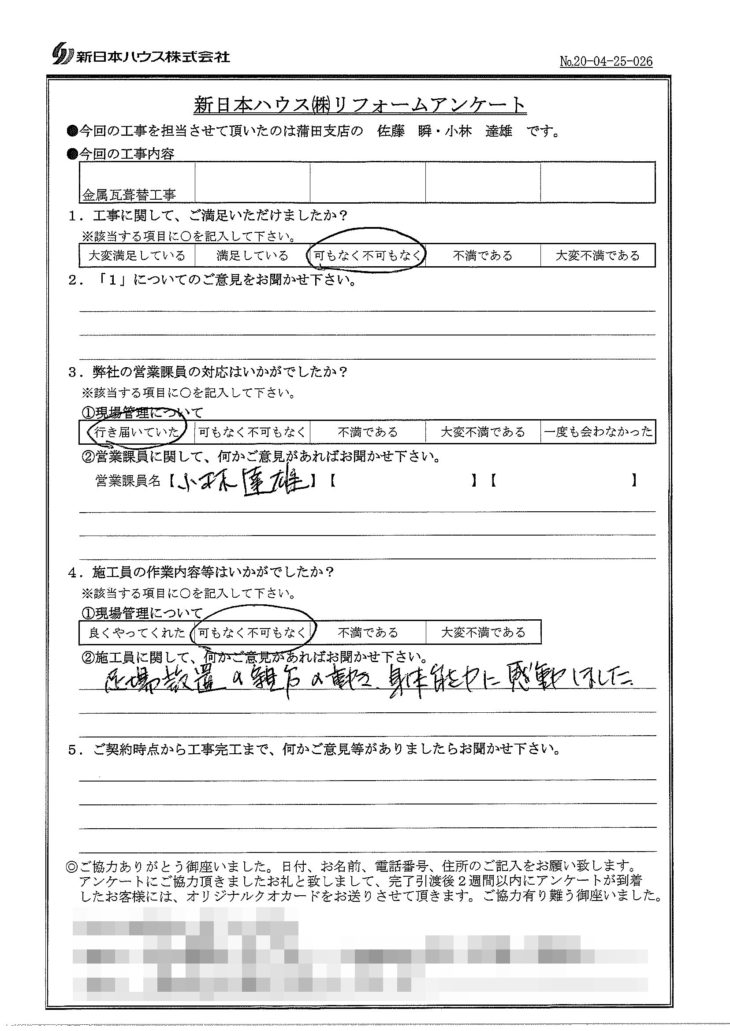 新日本ハウス株式会社
№20-04-25-026
新日本ハウス㈱リフォームアンケート
●今回の工事を担当させて頂いたのは蒲田支店の 佐藤 瞬・小林 達雄 です。
●今回の工事内容
金属瓦葺替工事
1．工事に関して、ご満足いただけましたか？
※該当する項目に○を記入して下さい。
大変満足している 満足している 可もなく不可もなく 不満である 大変不満である
2．「1」についてのご意見をお聞かせ下さい。
3．弊社の営業課員の対応はいかがでしたか？
※該当する項目に○を記入して下さい。
①現場管理について
行き届いていた 可もなく不可もなく 不満である 大変不満である 一度も会わなかった
②営業課員に関して、何かご意見があればお聞かせ下さい。
営業課員名【小林達雄】【 】【 】
4．施工員の作業内容等はいかがでしたか？
※該当する項目に○を記入して下さい。
①現場管理について
良くやってくれた 可もなく不可もなく 不満である 大変不満である
②施工員に関して、何かご意見があればお聞かせ下さい。
足場設置の の動き、身体能力に感動しました。
5．ご契約時点から工事完工まで、何かご意見等がありましたらお聞かせ下さい。
◎ご協力ありがとう御座いました。日付、お名前、電話番号、住所のご記入をお願い致します。
アンケートにご協力頂きましたお礼と致しまして、完了引渡後２週間以内にアンケートが到着
したお客様には、オリジナルクオカードをお送りさせて頂きます。ご協力有り難う御座いました。